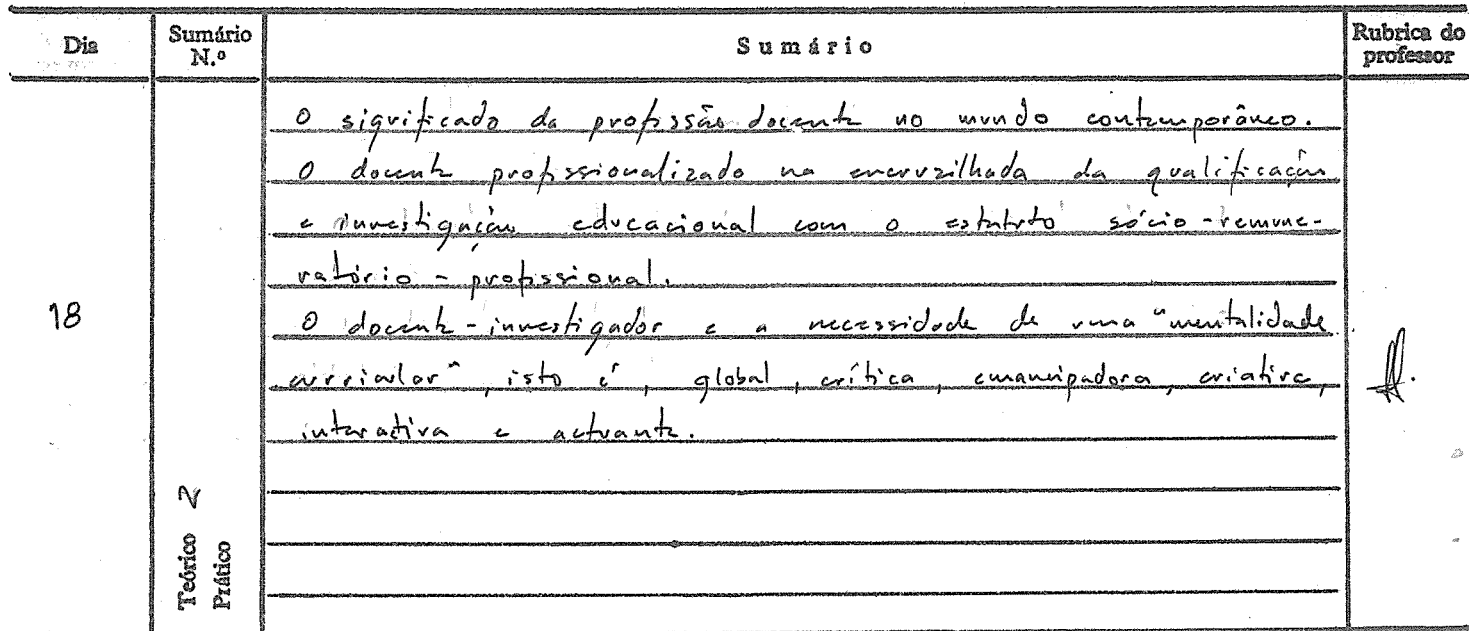 Dia
Sumário N.º
Sumário
Rubrica do professor
18
Teórico 2
Prático
O significado da profissão docente no mundo contemporâneo.
O docente profissionalizado na encruzilhada da qualificação
e investigação educacional com o estatuto sócio-remune-
ratório - profissional.
O docente-investigador e a necessidade de uma "mentalidade
curricular", isto é, global, crítica, emancipadora, criativa,
interactiva e actuante.